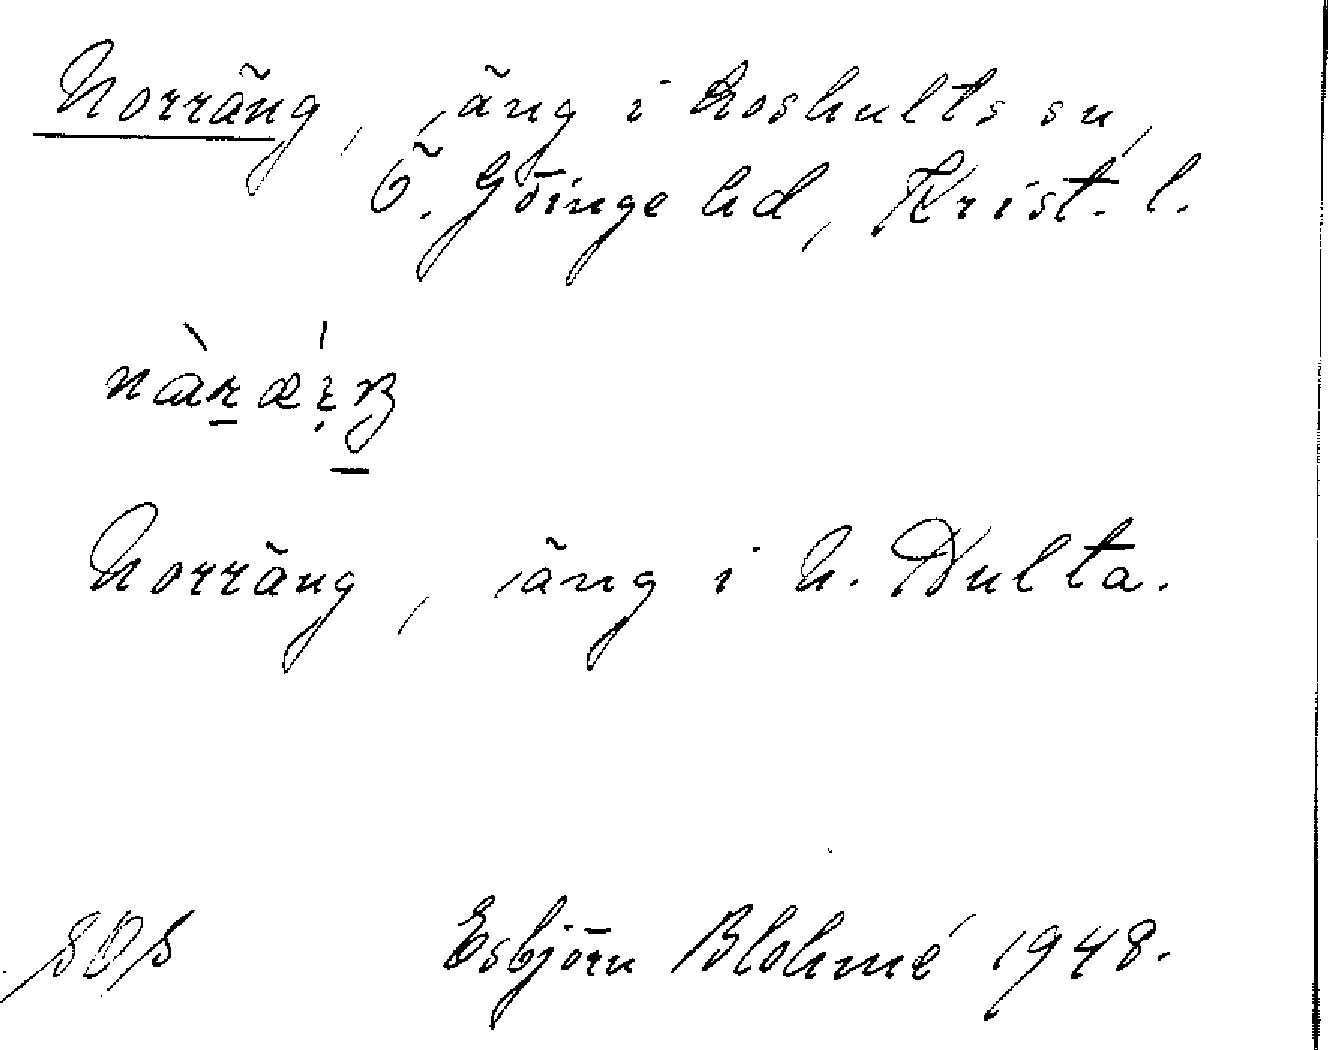 Norräng, äng i Loshults sn,
Ö. Göinge hd, Krist. l.
Norräng, äng i N. Hulta.
Esbjörn Blohmé 1948.